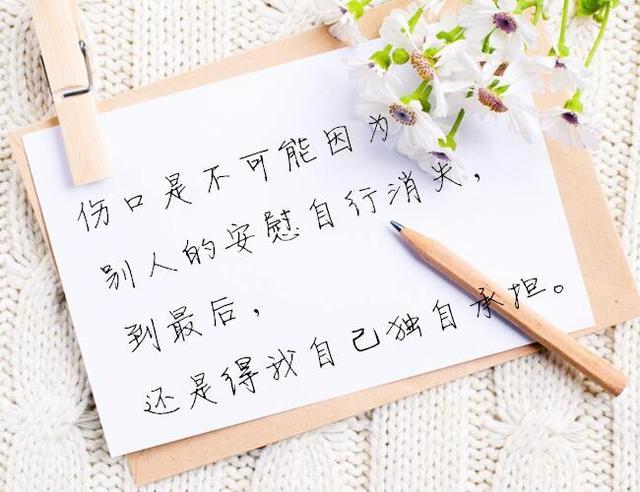 伤口是不可能因为
别人的安慰自行消失，
到最后，
还是得我自己独自承担。